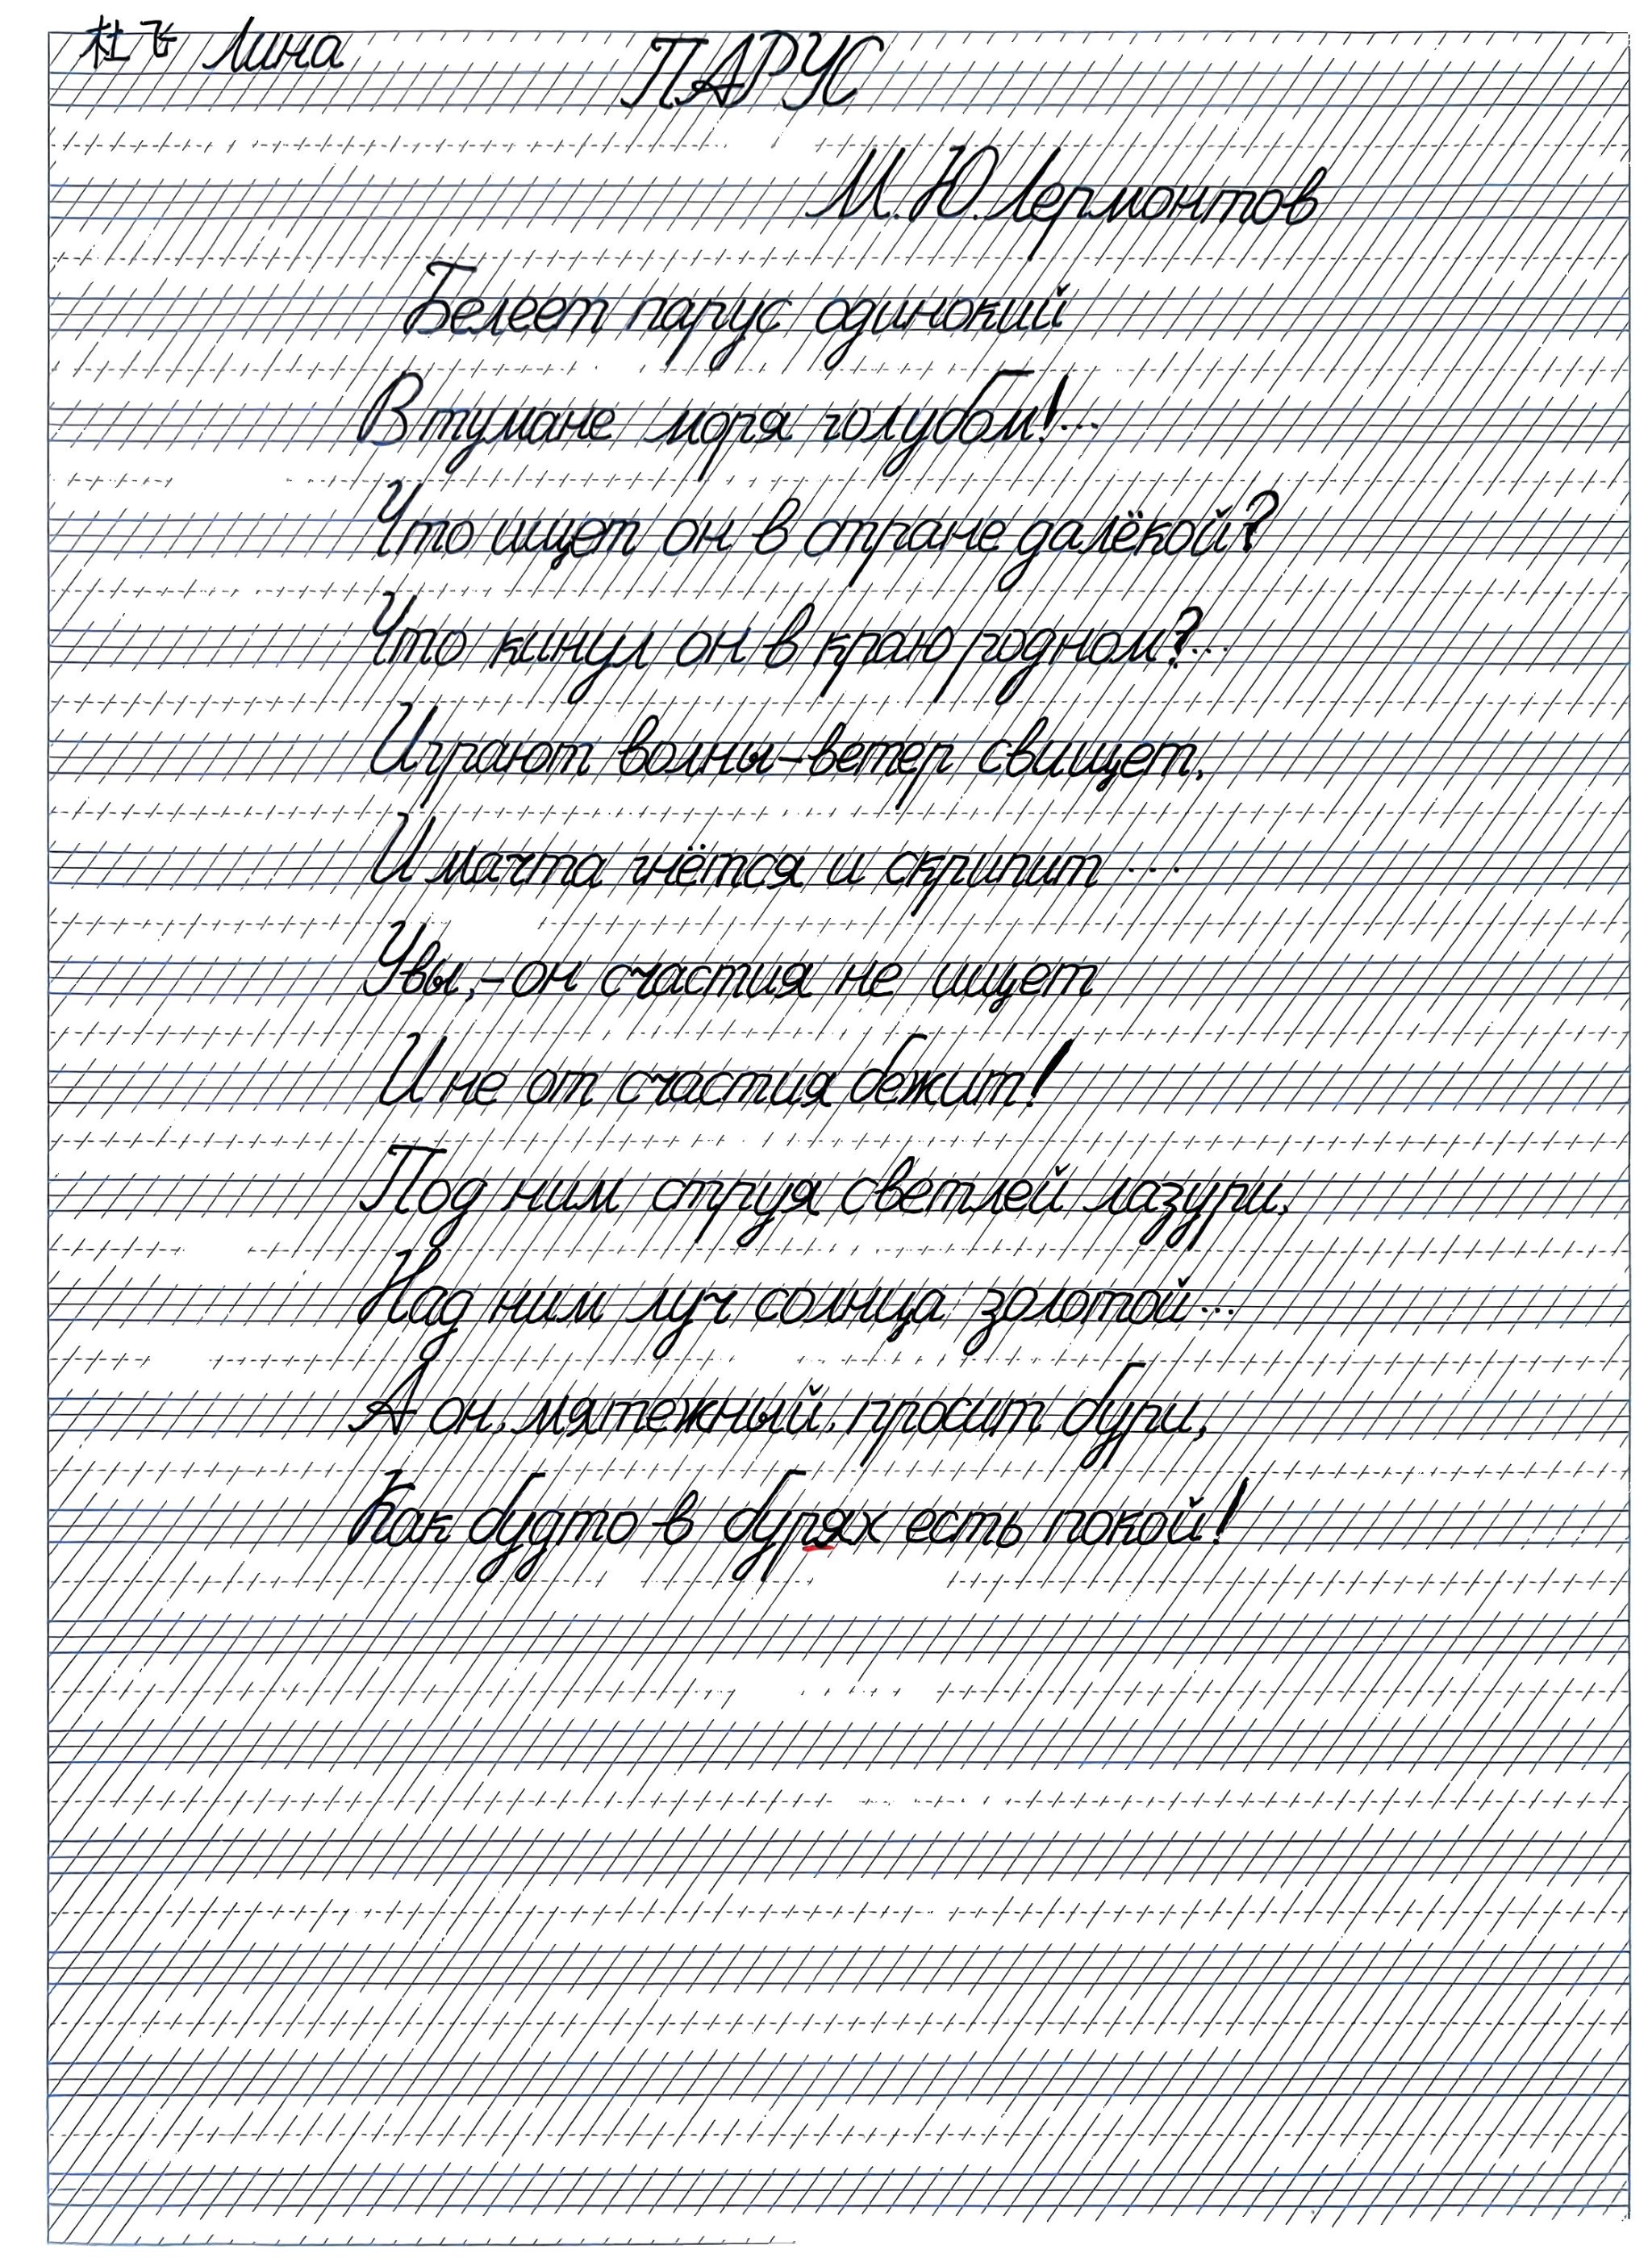 杜飞 Лина
ПАРУС
М.Ю.Лермонтов
Белеет парус одинокий
В тумане моря голубом!...
Что ищет он в стране далёкой?
Что кинул он в краю родном?...
Играют волны-ветер свищет,
И мачта гнётся и скрипит ...
Увы,-он счастия не ищет
И не от счастия бежит!
Под ним струя светлей лазури,
Над ним луч солнца золотой...
А он, мятежный, просит бури,
Как будто в бурях есть покой!